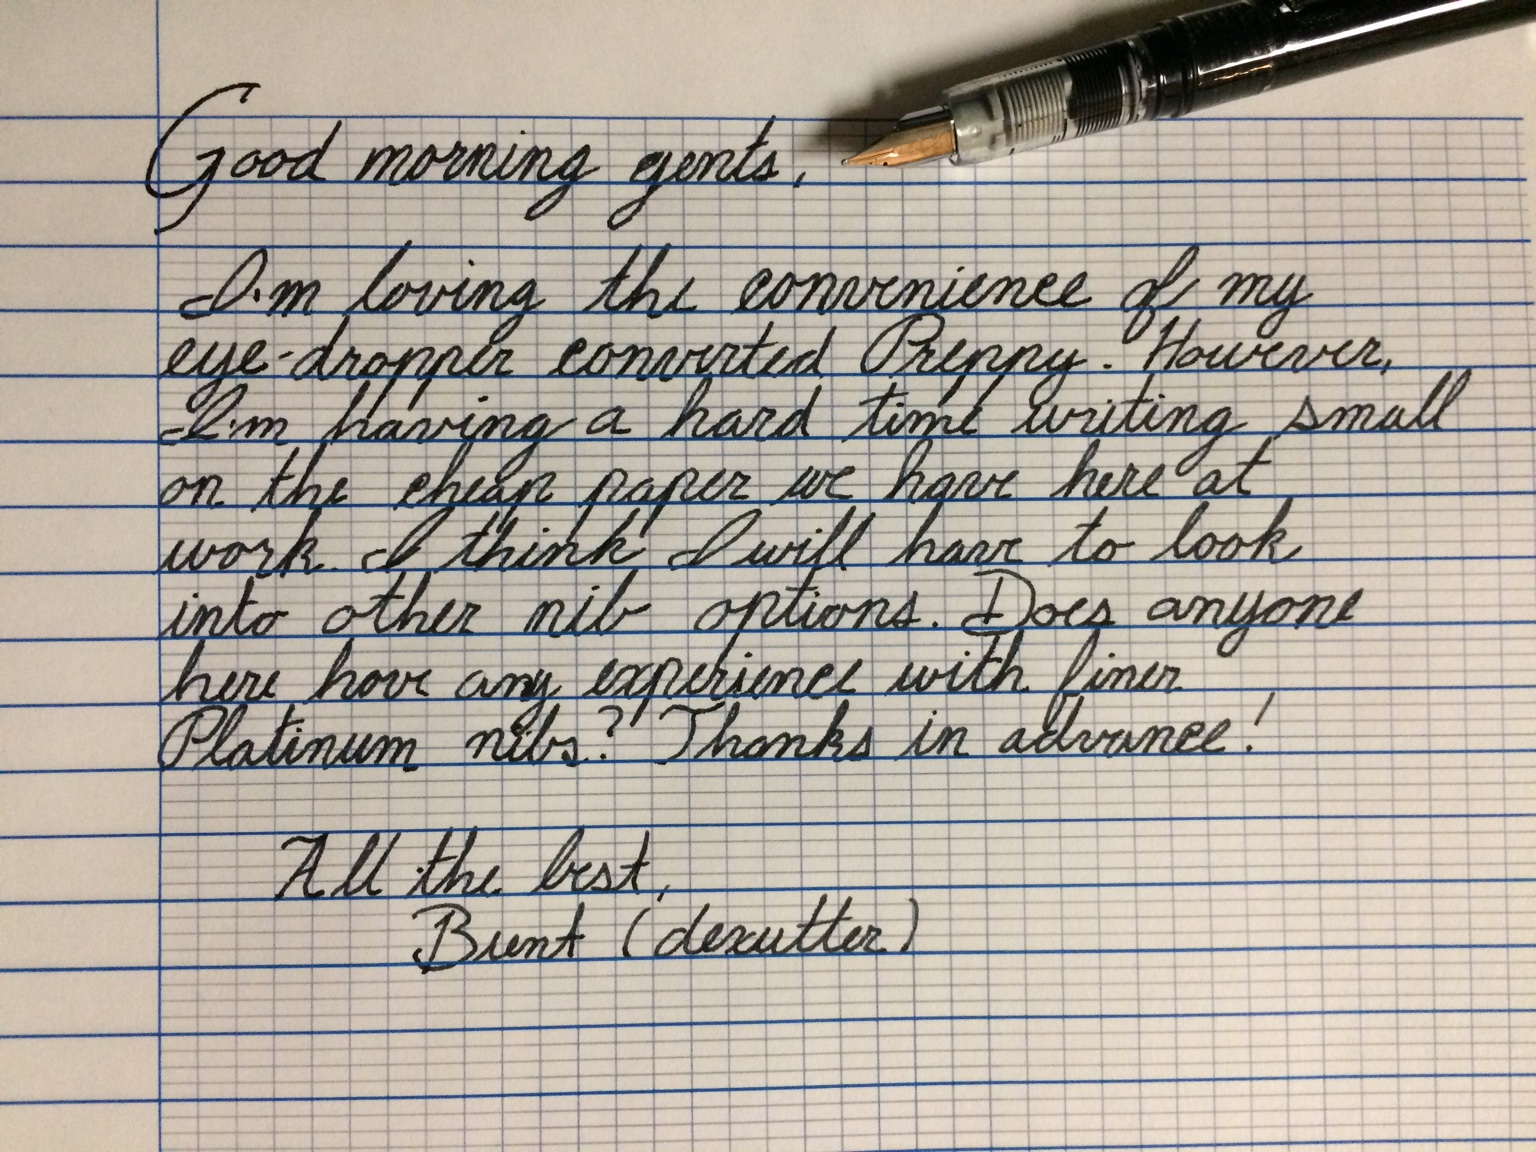 Good morning gents,
I'm loving the convenience of my
eye-dropper converted Preppy. However,
I'm having a hard time writing small
on the cheap paper we have here at
work. I think I will have to look
into other nib options. Does anyone
here have any experience with finer
Platinum nibs? Thanks in advance!
All the best,
(dexutter)